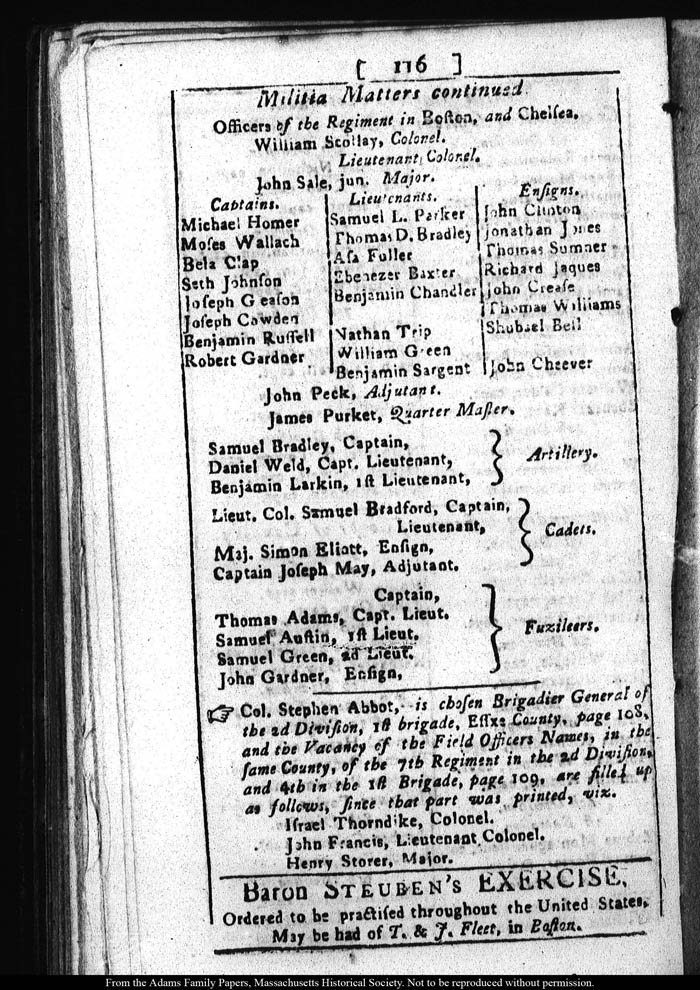 [ 116 ]
Militia Matters continued
Officers of the Regiment in Boſton, and Chelſea.
William Scollay, Colonel.
Lieutenant Colonel.
John Sale, jun. Major.
Captains.
Michael Homer
Moſes Wallach
Bela Clap
Seth Johnſon
Joſeph Gleaſon
Joſeph Cowden
Benjamin Ruſſell
Robert Gardner
Lieutenants.
Samuel L. Parker
Thomas D. Bradley
Aſa Fuller
Ebenezer Baxter
Benjamin Chandler
Nathan Trip
William Green
Benjamin Sargent
Enſigns.
John Clinton
Jonathan Jones
Thomas Sumner
Richard Jaques
John Creaſe
Thomas Williams
Shubael Bell
John Cheever
John Peck, Adjutant.
James Purket, Quarter Maſter.
Samuel Bradley, Captain,
Daniel Weld, Capt. Lieutenant,
Benjamin Larkin, 1ſt Lieutenant,
Artillery.
Lieut. Col. Samuel Bradford, Captain,
Lieutenant,
Maj. Simon Eliott, Enſign,
Captain Joſeph May, Adjutant.
Cadets.
Captain,
Thomas Adams, Capt. Lieut.
Samuel Auſtin, 1ſt Lieut.
Samuel Green, 2d Lieut.
John Gardner, Enſign,
Fuzileers.
☞ Col. Stephen Abbot, is choſen Brigadier General of
the 2d Diviſion, 1ſt brigade, Eſſex County, page 108,
and the Vacancy of the Field Officers Names, in the
ſame County, of the 7th Regiment in the 2d Diviſion,
and 4th in the 1ſt Brigade, page 109, are filled up
as follows, ſince that part was printed, viz.
Iſrael Thorndike, Colonel.
John Francis, Lieutenant Colonel.
Henry Storer, Major.
Baron STEUBEN'S EXERCISE,
Ordered to be practiſed throughout the United States,
May be had of T. & J. Fleet, in Boſton.
From the Adams Family Papers, Massachusetts Historical Society. Not to be reproduced without permission.